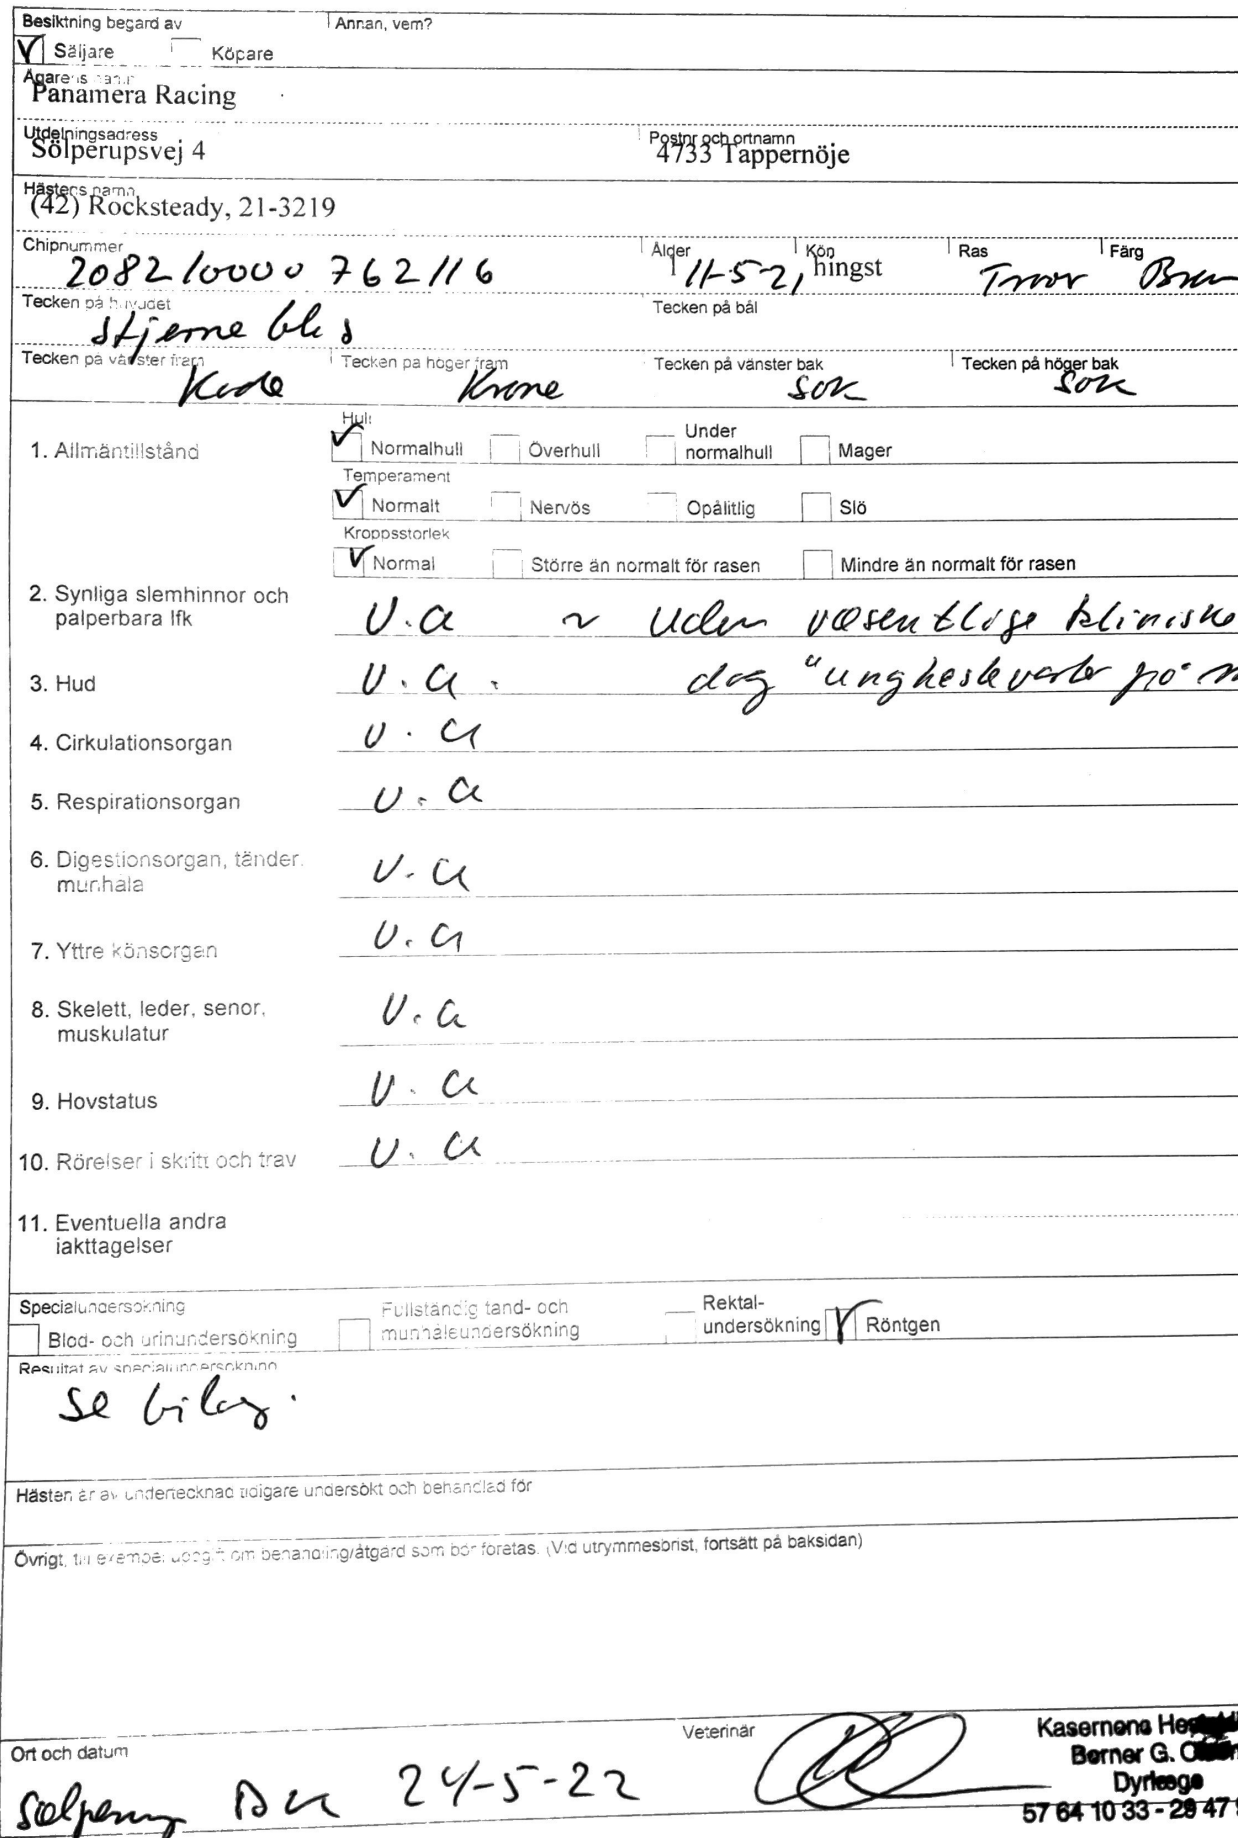 Besiktning begärd av Annan, vem?
Säljare Köpare
Ägarens namn
Panamera Racing
Utdelningsadress Postnr och ortnamn
Sölperupsvej 4 4733 Tappernöje
Hästens namn
(42) Rocksteady, 21-3219
Chipnummer Ålder Kön Ras Färg
208210000762116 11-5-21 hingst
Tecken på huvudet Tecken på bål
stjerne blis
Tecken på vänster fram Tecken på höger fram Tecken på vänster bak Tecken på höger bak
Kode Krone sok sok
Hull
1. Allmäntillstånd Normalhull Överhull Under normalhull Mager
Temperament
Normalt Nervös Opålitlig Slö
Kroppsstorlek
Normal Större än normalt för rasen Mindre än normalt för rasen
2. Synliga slemhinnor och
palperbara lfk U.a ~ Uden væsentlige kliniske
3. Hud U.a. dog "ungheste
4. Cirkulationsorgan U.a
5. Respirationsorgan U.a
6. Digestionsorgan, tänder,
munhåla U.a
7. Yttre könsorgan U.a
8. Skelett, leder, senor,
muskulatur U.a
9. Hovstatus U.a
10. Rörelser i skritt och trav U.a
11. Eventuella andra
iakttagelser
Specialundersökning
Blod- och urinundersökning Fullständig tand- och munhåleundersökning Rektal-undersökning Röntgen
Resultat av specialundersökning
se bilag.
Hästen är av undertecknad tidigare undersökt och behandlad för
Övrigt, till exempel uppgift om behandling/åtgärd som bör företas. (Vid utrymmesbrist, fortsätt på baksidan)
Ort och datum Veterinär
24-5-22
Kasernens
Berner G.
Dyrlæge
57 64 10 33 - 29 47